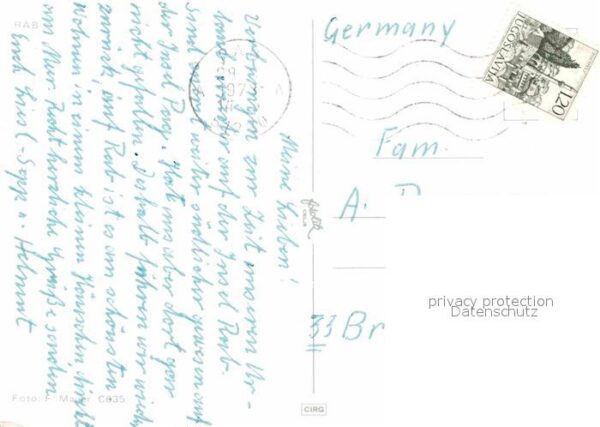 RAB
Meine Lieben!
Verbringen zur Zeit unseren Ur-
laub wieder auf der Insel Rab.
Sind weiter südlicher gewesen auf
der Insel Pag. Hat uns aber dort gar
nicht gefallen. Deshalb fuhren wir wieder
zurück, auf Rab ist es am schönsten
Wohnen in einem kleinen Häuschen direkt
am Meer. Recht herzliche Grüße senden
Euch Liesl - Sepp u. Helmut
Germany
JUGOSLAVIJA
1.20
Fam.
A.
33 Br
privacy protection
Datenschutz
CIRG